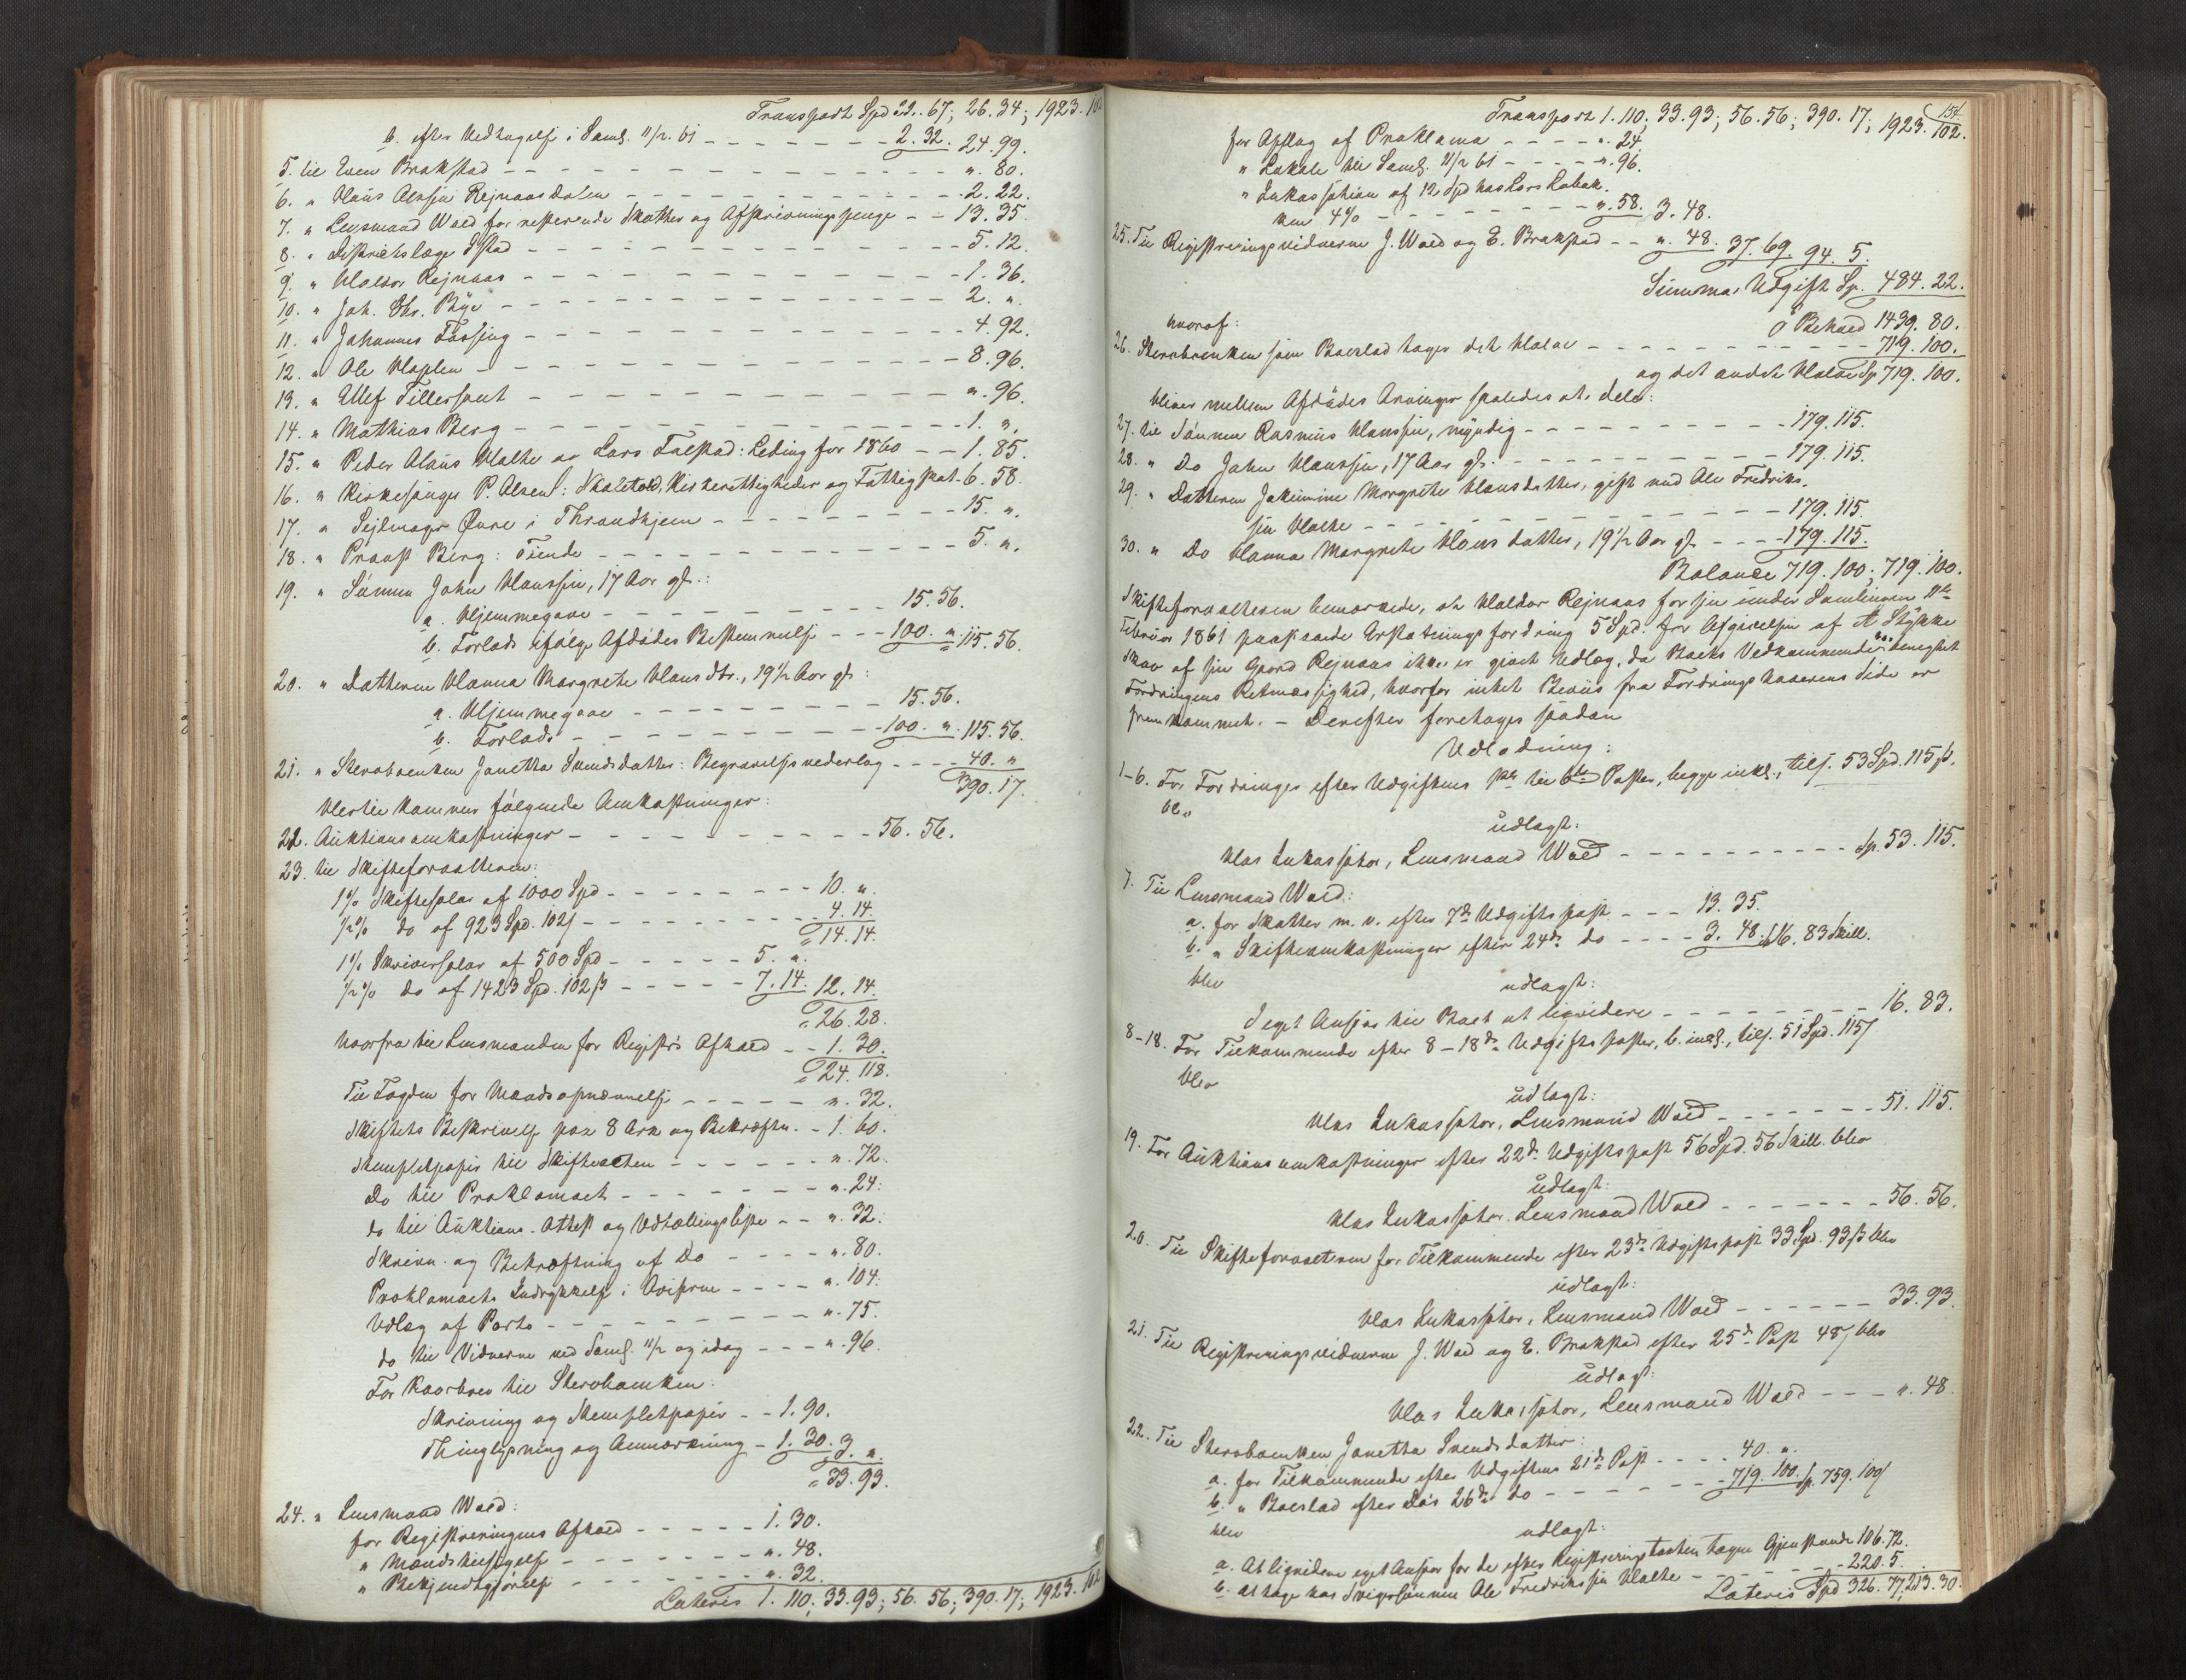 Transport Spd 22. 67; 26. 34; 1923. 102
b. efter Vedtagelse i Saml. 11/2. 61 - - - 2. 32. 24. 99.
5. til Sven Brakstad - - - ". 80.
6. " Claus Olsen Rejnaasdalen - - - 2. 22.
7. " Lensmand Wold for resterende Skatter og Afskrivningspenge - - 13. 35.
8. " Distriktslæge Stad - - - 5. 12.
9. " Haldor Rejnaas - - - 1. 36.
10. " Joh. Chr. Bye - - - 2. ".
11. " Johannes Fossing - - - 4. 92.
12. " Ole - - - 8. 96.
13. " Ellef Tillersaut - - - ". 96.
14. " Mathias Berg - - - 1. ".
15. " Peder Olaus Valte og Lars Falstad: Leding for 1860 - - 1. 85.
16. " Kirkesanger P. Olsen: Skoletold, Kirkerettigheder og Fattigskat - 6. 58.
17. " Sejlmager Qvere i Throndhjem - - - 15. ".
18. " Provst Berg: Tiende - - - 5. ".
19. " Sønnen John Hanssen, 17 Aar gl.:
a. Hjemmegave - - - 15. 56.
b. Forlods ifølge Afdødes Bestemmelse - - - 100. " 115. 56.
20. " Datteren Hanna Margrete Hansdtr., 19 1/2 Aar gl:
a. Hjemmegave - - - 15. 56.
b. Forlods - - - 100. ". 115. 56.
21. " Stervboenken Janetta Svendsdatter: Begravelsesvederlag - - - 40. "
390. 17.
Hertil kommer følgende Omkostninger:
22. Auktionsomkostninger - - - 56. 56.
23. til Skifteforvalteren:
1% Skiftesalær af 1000 Spd - - - 10. ".
1/2% do af 923 Spd. 102 ß - - - 4. 14.
" 14. 14.
1% Skriversalær af 500 Spd - - - 5. ".
1/2% do af 1423 Spd. 102 ß - - - 7. 14. 12. 14.
" 26. 28.
hvorfra til Lensmanden for Registr's Afhold - - 1. 30.
" 24. 118.
Til Fogden for Mændsopnævnelse - - - ". 32.
Skiftets Beskrivelse paa 8 Ark og Bekræftn. - 1. 60.
Stempletpapir til Skifteakten - - - ". 72.
Do til Proklamaet - - - ". 24.
do til Auktions-Attest og Udtællingsliste - - ". 32.
Skrivn. og Bekræftning af Do - - - ". 80.
Proklamaets Indrykkelse i Aviserne - - - ". 104.
Udlæg af Porto - - - ". 75.
do til Vidnerne ved Saml. 11/2 og idag - - - ". 96.
For Kaarbrev til Stervboenken:
Skrivning og Stempletpapir - - 1. 90.
Thinglysning og Anmærkning - 1. 30. 3. ".
" 33. 93.
24. " Lensmand Wold:
for Registreringens Afhold - - - 1. 30.
" Mændstilsigelse - - - ". 48.
" Bekjendtgjørelse - - - ". 32.
Lateris 1. 110; 33. 93; 56. 56; 390. 17; 1923. 102
154
Transport 1. 110; 33. 93; 56. 56; 390. 17; 1923. 102.
for Opslag af Proklama - - - ". 24.
" Lokale til Saml. 11/2 61 - - - ". 96.
" Inkassation af 12 Spd hos Lars Labak-
ken 4% - - - ". 58. 3. 48.
25. Til Registreringsvidnerne J. Wold og E. Brakstad - - ". 48. 37. 69. 94. 5.
Summa Udgift Sp. 484. 22.
Behold 1439. 80.
hvoraf:
26. Stervboenken som Boeslod tager det Halve - - - 719. 100.
og det andet Halve Sp 719. 100.
bliver mellem Afdødes Arvinger saaledes at dele:
27. til Sønnen Rasmus Hanssen, myndig - - - 179. 115.
28. " Do John Hanssen, 17 Aar gl. - - - 179. 115.
29. " Datteren Jakumine Margrete Hansdatter, gift med Ole Fredrik-
sen Valte - - - 179. 115.
30. " Do Hanna Margrete Hansdatter, 19 1/2 Aar gl - - - 179. 115.
Balance 719. 100; 719. 100.
Skifteforvalteren bemærkede, at Haldor Rejnaas for sin under Samlingen 11te
Februar 1861 paastaaede Erstatningsfordring 5 Spd. for Afgivelsen af et Stykke
Skov af sin Gaard Rejnaas ikke er gjort Udlæg, da Boets Vedkommende har benegtet
Fordringens Retmæssighed, hvorfor intet Beviis fra Fordringshaverens Side er
fremkommet. - Derefter foretages saadan
Udlodning:
1-6. For Fordringer efter Udgiftens 1ste til 6te Poster, begge inkl., tils. 53 Spd. 115 ß.
blev
udlagt:
Hos Inkassator, Lensmand Wold - - - Sp. 53. 115.
7. Til Lensmand Wold:
a. for Skatter m. v. efter 7de Udgiftspost - - - 13. 35.
b. " Skifteomkostninger efter 24de do - - - 3. 48. Sp 16. 83 Skill.
blev
udlagt:
I eget Ansvar til Boet at liqvidere - - - 16. 83.
8-18. For Tilkommende efter 8-18de Udgiftsposter, b. inkl., tils. 51 Spd. 115 ß
blev
udlagt:
Hos Inkassator, Lensmand Wold - - - 51. 115.
19. For Auktionsomkostninger efter 22de Udgiftspost 56 Spd. 56 Skill. blev
udlagt:
Hos Inkassator Lensmand Wold - - - 56. 56.
20. Til Skifteforvalteren for Tilkommende efter 23de Udgiftspost 33 Spd. 93 ß blev
udlagt:
Hos Inkassator, Lensmand Wold - - - 33. 93.
21. Til Registreringsvidnerne J. Wold og E. Brakstad efter 25de Post 48 ß blev
udlagt:
Hos Inkassator, Lensmand Wold - - - ". 48.
22. Til Stervboenken Janetta Svendsdatter:
a. for Tilkommende efter Udgiftens 21de Post - - - 40. ".
b. " Boeslod efter Do's 26de do - - - 719. 100. Sp. 759. 100 ß
blev
udlagt:
a. At liqvidere eget Ansvar for de efter Registreringstaxten tagne Gjenstande 106. 72.
b. at tage hos Svigersønnen Ole Fredriksen Valte - - - 220. 5.
Lateris Spd 326. 77; 213. 30.